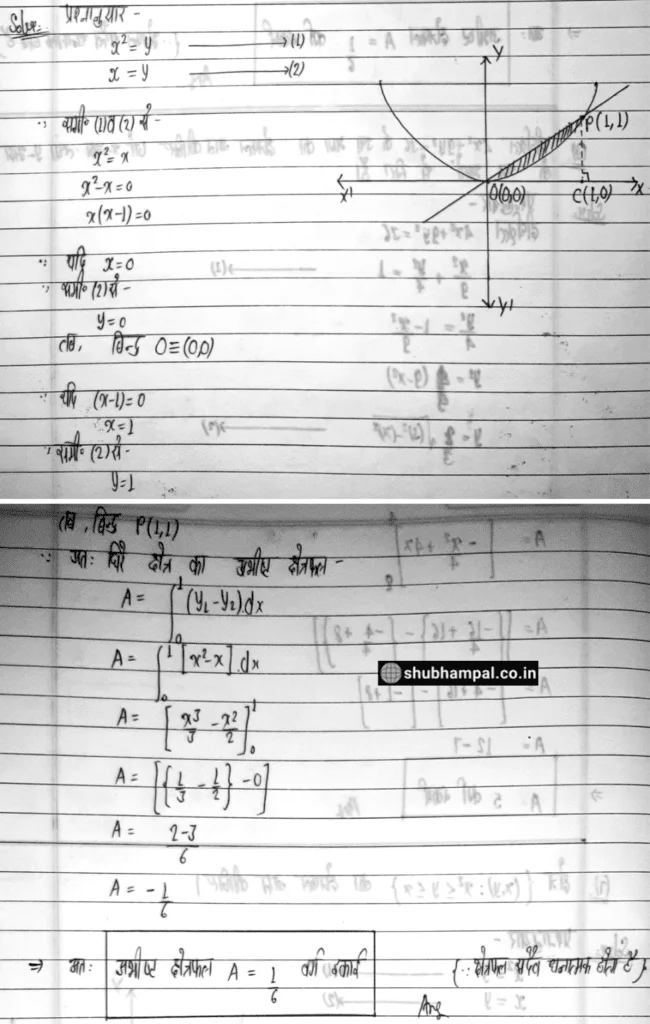 Solve:- प्रश्नानुसार -
x² = y ⟶ (1)
x = y ⟶ (2)
∵ समी॰ (1) व (2) से -
x² = x
x² - x = 0
x(x-1) = 0
∵ यदि x = 0
∵ समी॰ (2) से -
y = 0
तब, बिन्दु O ≡ (0,0)
∵ यदि (x-1) = 0
x = 1
∵ समी॰ (2) से -
y = 1
Y
P(1,1)
X'
O(0,0)
C(1,0)
X
Y'
तब, बिन्दु P(1,1)
∵ अतः घिरे क्षेत्र का अभीष्ट क्षेत्रफल -
A = ∫₀¹ (y₁ - y₂).dx
A = ∫₀¹ [x² - x].dx
shubhampal.co.in
A = [x³/3 - x²/2]₀¹
A = [{1/3 - 1/2} - 0]
A = (2-3)/6
A = -1/6
⇒ अतः अभीष्ट क्षेत्रफल A = 1/6 वर्ग इकाई {∵ क्षेत्रफल सदैव धनात्मक होता है}
Ans